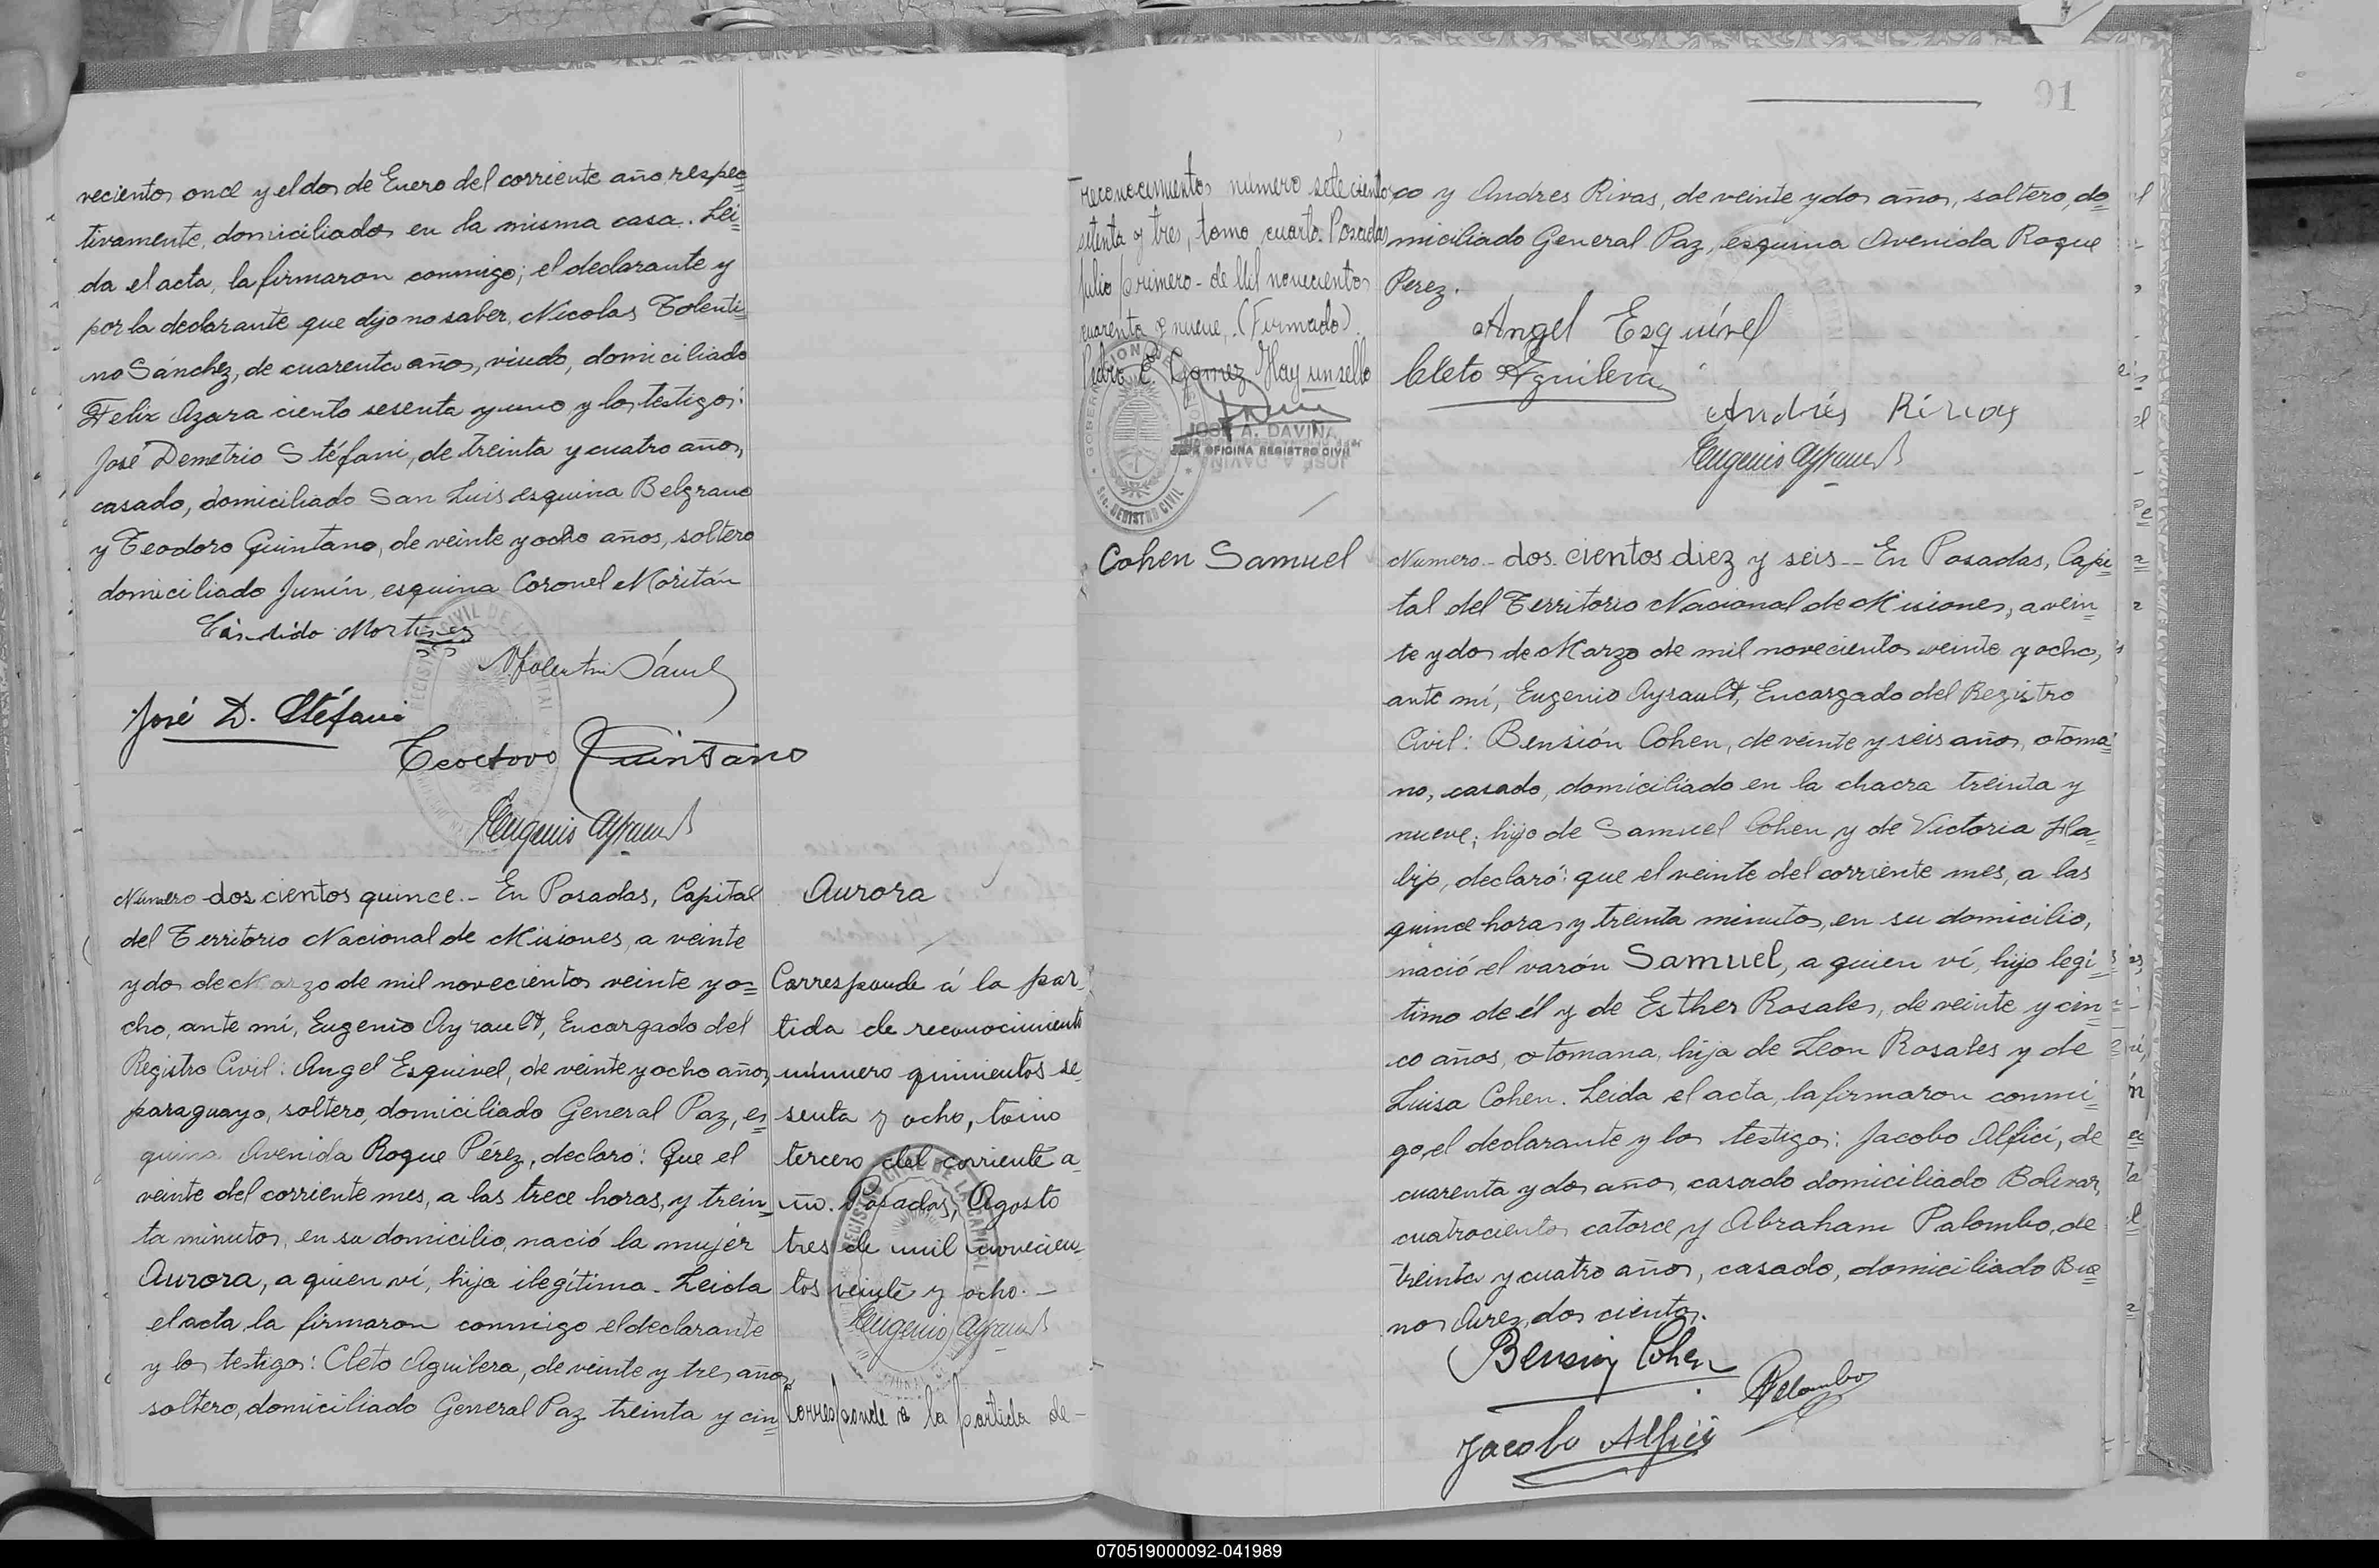 vecientos once y el dos de Enero del corriente año respec=
tivamente, domiciliados en la misma casa. Lei=
da el acta, la firmaron conmigo; el declarante y
por la declarante que dijo no saber, Nicolas Tolenti=
no Sánchez, de cuarenta años, viudo, domiciliado
Felix Azara ciento sesenta y uno y los testigos:
José Demetrio Stéfani, de treinta y cuatro años,
casado, domiciliado San Luis esquina Belgrano
y Teodoro Quintana, de veinte y ocho años, soltero
domiciliado Junín, esquina Coronel Moritán
Cándido Martinez
José D. Stéfani
Teodoro Quintano
Eugenio Ayrault
Número dos cientos quince.- En Posadas, Capital
del Territorio Nacional de Misiones, a veinte
y dos de Marzo de mil novecientos veinte y o=
cho, ante mí, Eugenio Ayrault, Encargado del
Registro Civil: Angel Esquivel, de veinte y ocho años,
paraguayo, soltero, domiciliado General Paz, es=
quina Avenida Roque Pérez, declaro: Que el
veinte del corriente mes, a las trece horas, y trein=
ta minutos, en su domicilio, nació la mujer
Aurora, a quien ví, hija ilegítima. Leida
el acta, la firmaron conmigo el declarante
y los testigos: Cleto Aguilera, de veinte y tres años,
soltero, domiciliado General Paz treinta y cin=
Aurora
Corresponde á la par-
tida de reconocimiento
número quinientos se-
senta y ocho, tomo
tercero del corriente a-
ño. Posadas, Agosto
tres de mil novecien-
tos veinte y ocho.-
Eugenio Ayrault
Corresponde a la partida de-
91
reconocimientos número setecientos
setenta y tres, tomo cuarto. Posadas
Julio primero - de Mil novecientos
cuarenta y nueve,. (Firmado).
Pedro E. Gomez Hay un sello
JOSE A. DAVIÑA
OFICINA REGISTRO CIVIL
co y Andrés Rivas, de veinte y dos años, soltero, do=
miciliado General Paz, esquina Avenida Roque
Perez.
Angel Esquível
Cleto Aguilera
Andrés Rivas
Eugenio Ayrault
Cohen Samuel
Número.- dos. cientos diez y seis.- En Posadas, Capi=
tal del Territorio Nacional de Misiones, a vein
te y dos de Marzo de mil novecientos veinte y ocho,
ante mí, Eugenio Ayrault, Encargado del Registro
Civil: Bensión Cohen, de veinte y seis años, otoma=
no, casado, domiciliado en la chacra treinta y
nueve; hijo de Samuel Cohen y de Victoria Ha=
bip, declaró: que el veinte del corriente mes, a las
quince horas y treinta minutos, en su domicilio,
nació el varón Samuel, a quien ví, hijo legí=
timo de él y de Esther Rosales, de veinte y cin=
co años, otomana, hija de Leon Rosales y de
Luisa Cohen. Leida el acta, la firmaron conmi=
go, el declarante y los testigos: Jacobo Alfici, de
cuarenta y dos años, casado domiciliado Bolivar,
cuatrocientos catorce y Abraham Palombo, de
treinta y cuatro años, casado, domiciliado Bue=
nos Aires, dos cientos.
Bension Cohen
Palombo
Jacobo Alfici
070519000092-041989